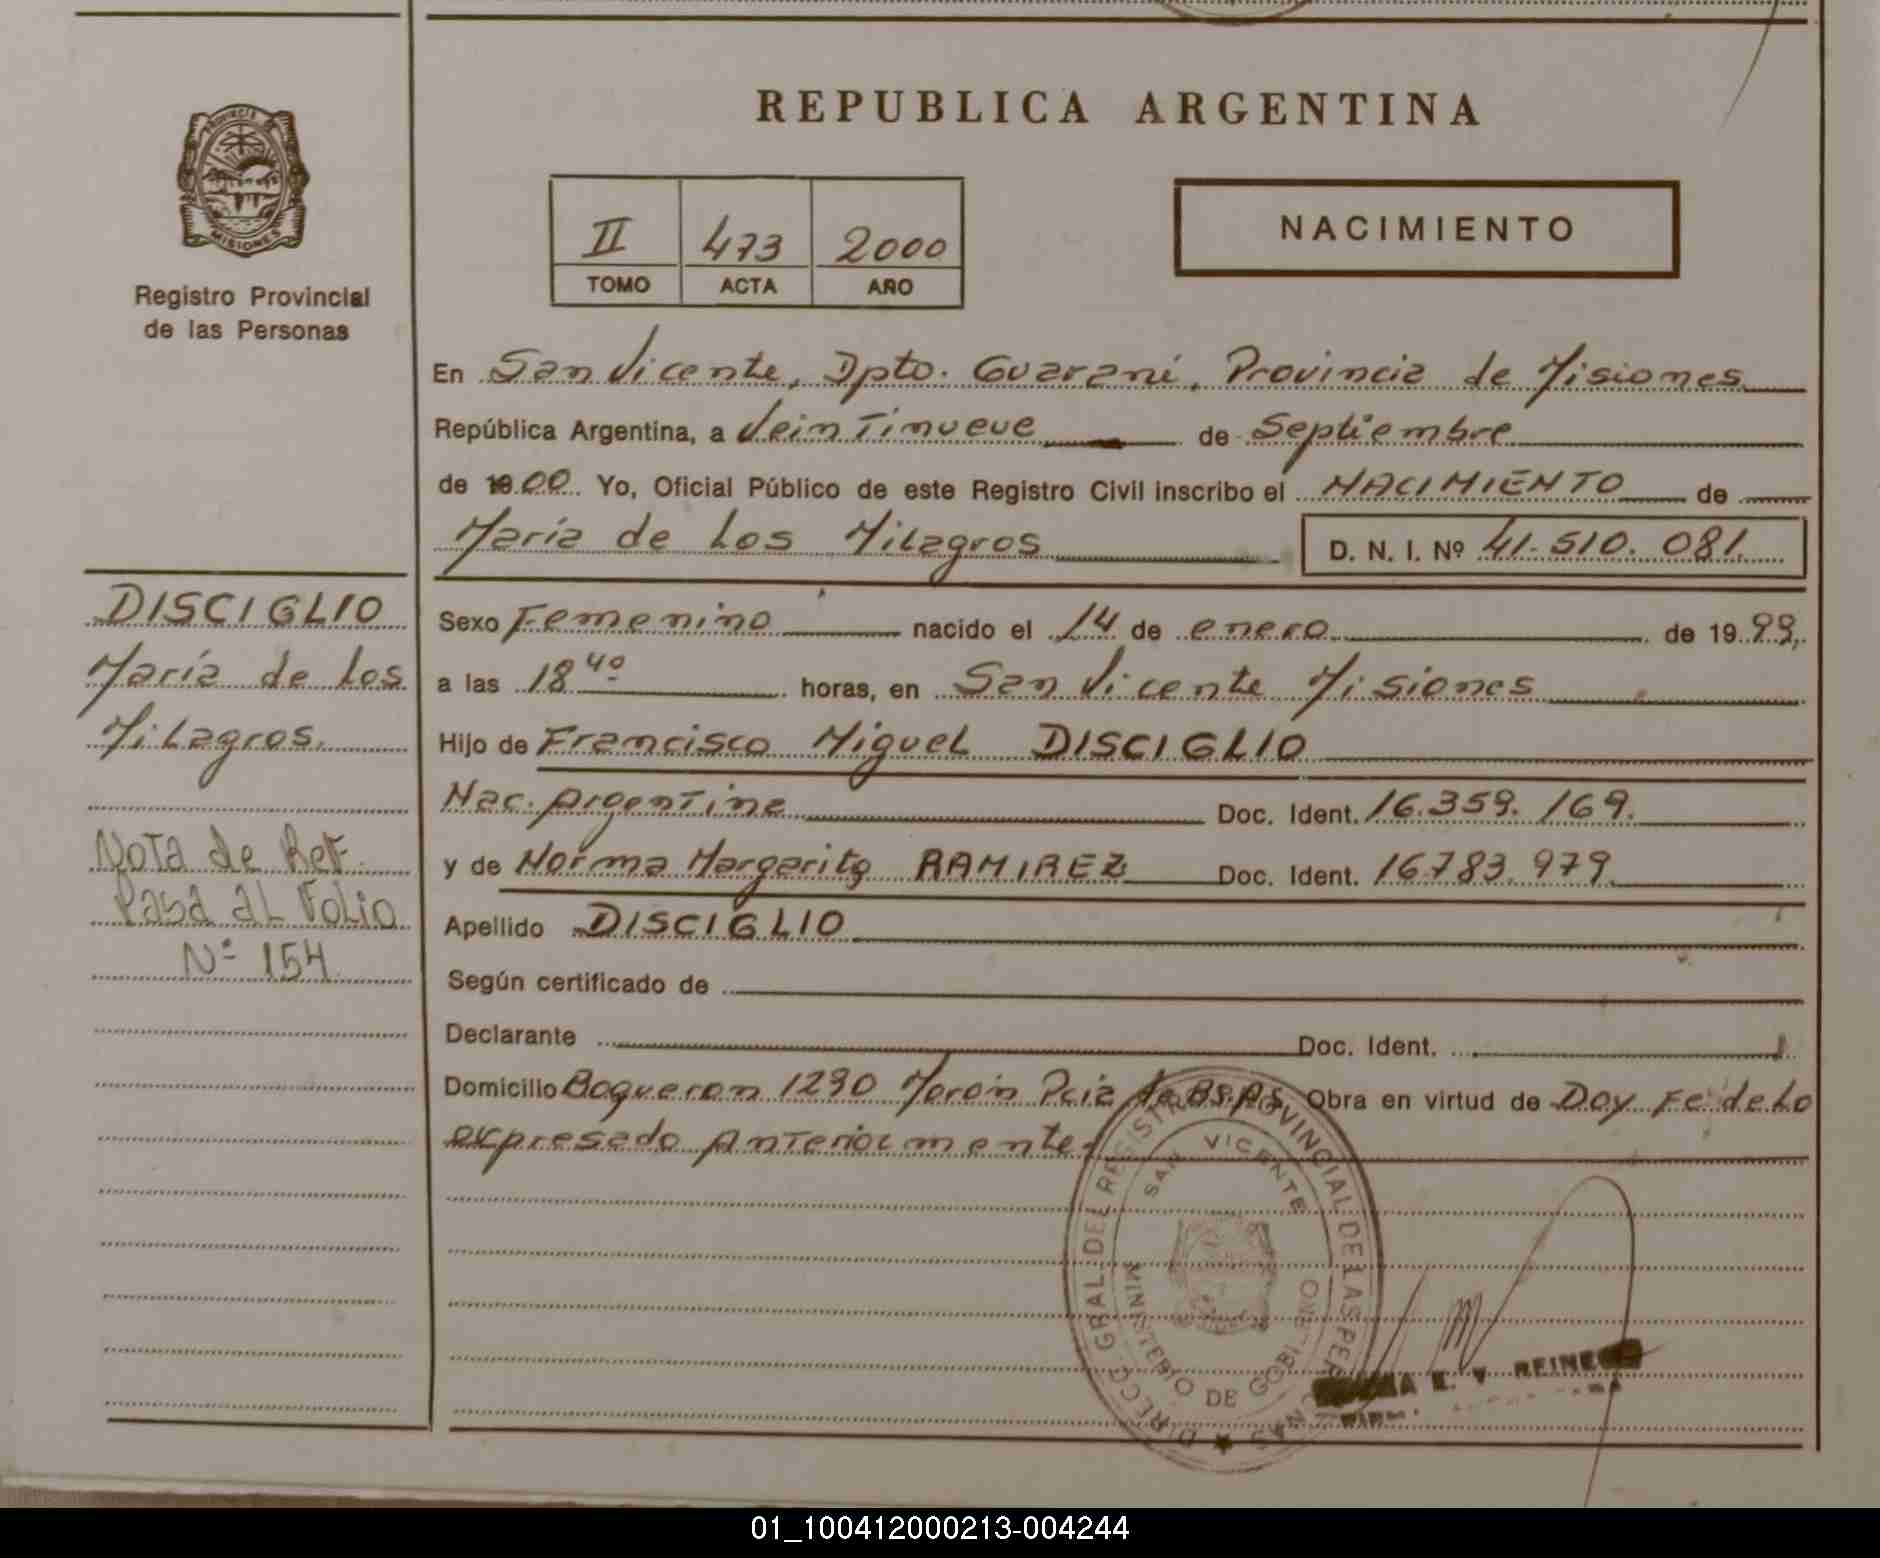 REPUBLICA ARGENTINA
PROVINCIA DE
MISIONES
Registro Provincial
de las Personas
II 473 2000
TOMO ACTA AÑO
NACIMIENTO
En San Vicente, Dpto. Guaraní, Provincia de Misiones
República Argentina, a Veintinueve de Septiembre
de 1900 Yo, Oficial Público de este Registro Civil inscribo el NACIMIENTO de
María de los Milagros D. N. I. Nº 41.510.081.
DISCIGLIO
María de los
Milagros.
Nota de Ref.
Pasa al Folio
Nº 154
Sexo Femenino nacido el 14 de enero de 1999,
a las 18 40 horas, en San Vicente Misiones
Hijo de Francisco Miguel DISCIGLIO
Nac. Argentina Doc. Ident. 16.359.169.
y de Norma Margarita RAMIREZ Doc. Ident. 16.783.979.
Apellido DISCIGLIO
Según certificado de
Declarante Doc. Ident.
Domicilio Boqueron 1290 Morón Pcia de BS.AS. Obra en virtud de Doy Fe de lo
expresado Anteriormente.
DIRECC. GRAL. DEL REGISTRO PROVINCIAL DE LAS PERSONAS
SAN VICENTE
MINISTERIO DE GOBIERNO
E. V. REINE
01_100412000213-004244